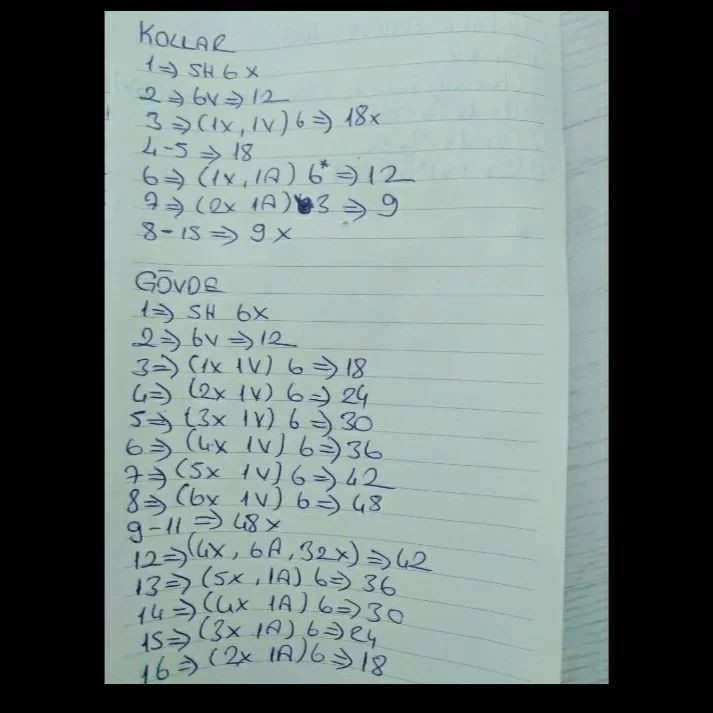 KOLLAR
1⇒ SH 6 X
2 ⇒ 6V ⇒ 12
3 ⇒ (1X, 1V) 6 ⇒ 18x
4-5 ⇒ 18
6 ⇒ (1X, 1A) 6* ⇒ 12
7 ⇒ (2X 1A) 3 ⇒ 9
8-15 ⇒ 9 X
GÖVDE
1⇒ SH 6X
2⇒ 6V ⇒ 12
3⇒ (1X 1V) 6 ⇒ 18
4⇒ (2X 1V) 6 ⇒ 24
5⇒ (3X 1V) 6 ⇒ 30
6⇒ (4X 1V) 6 ⇒ 36
7⇒ (5X 1V) 6 ⇒ 42
8⇒ (6X 1V) 6 ⇒ 48
9-11 ⇒ 48 X
12⇒ (4X, 6A, 32X) ⇒ 42
13⇒ (5X, 1A) 6 ⇒ 36
14⇒ (4X 1A) 6 ⇒ 30
15⇒ (3X 1A) 6 ⇒ 24
16⇒ (2X 1A) 6 ⇒ 18